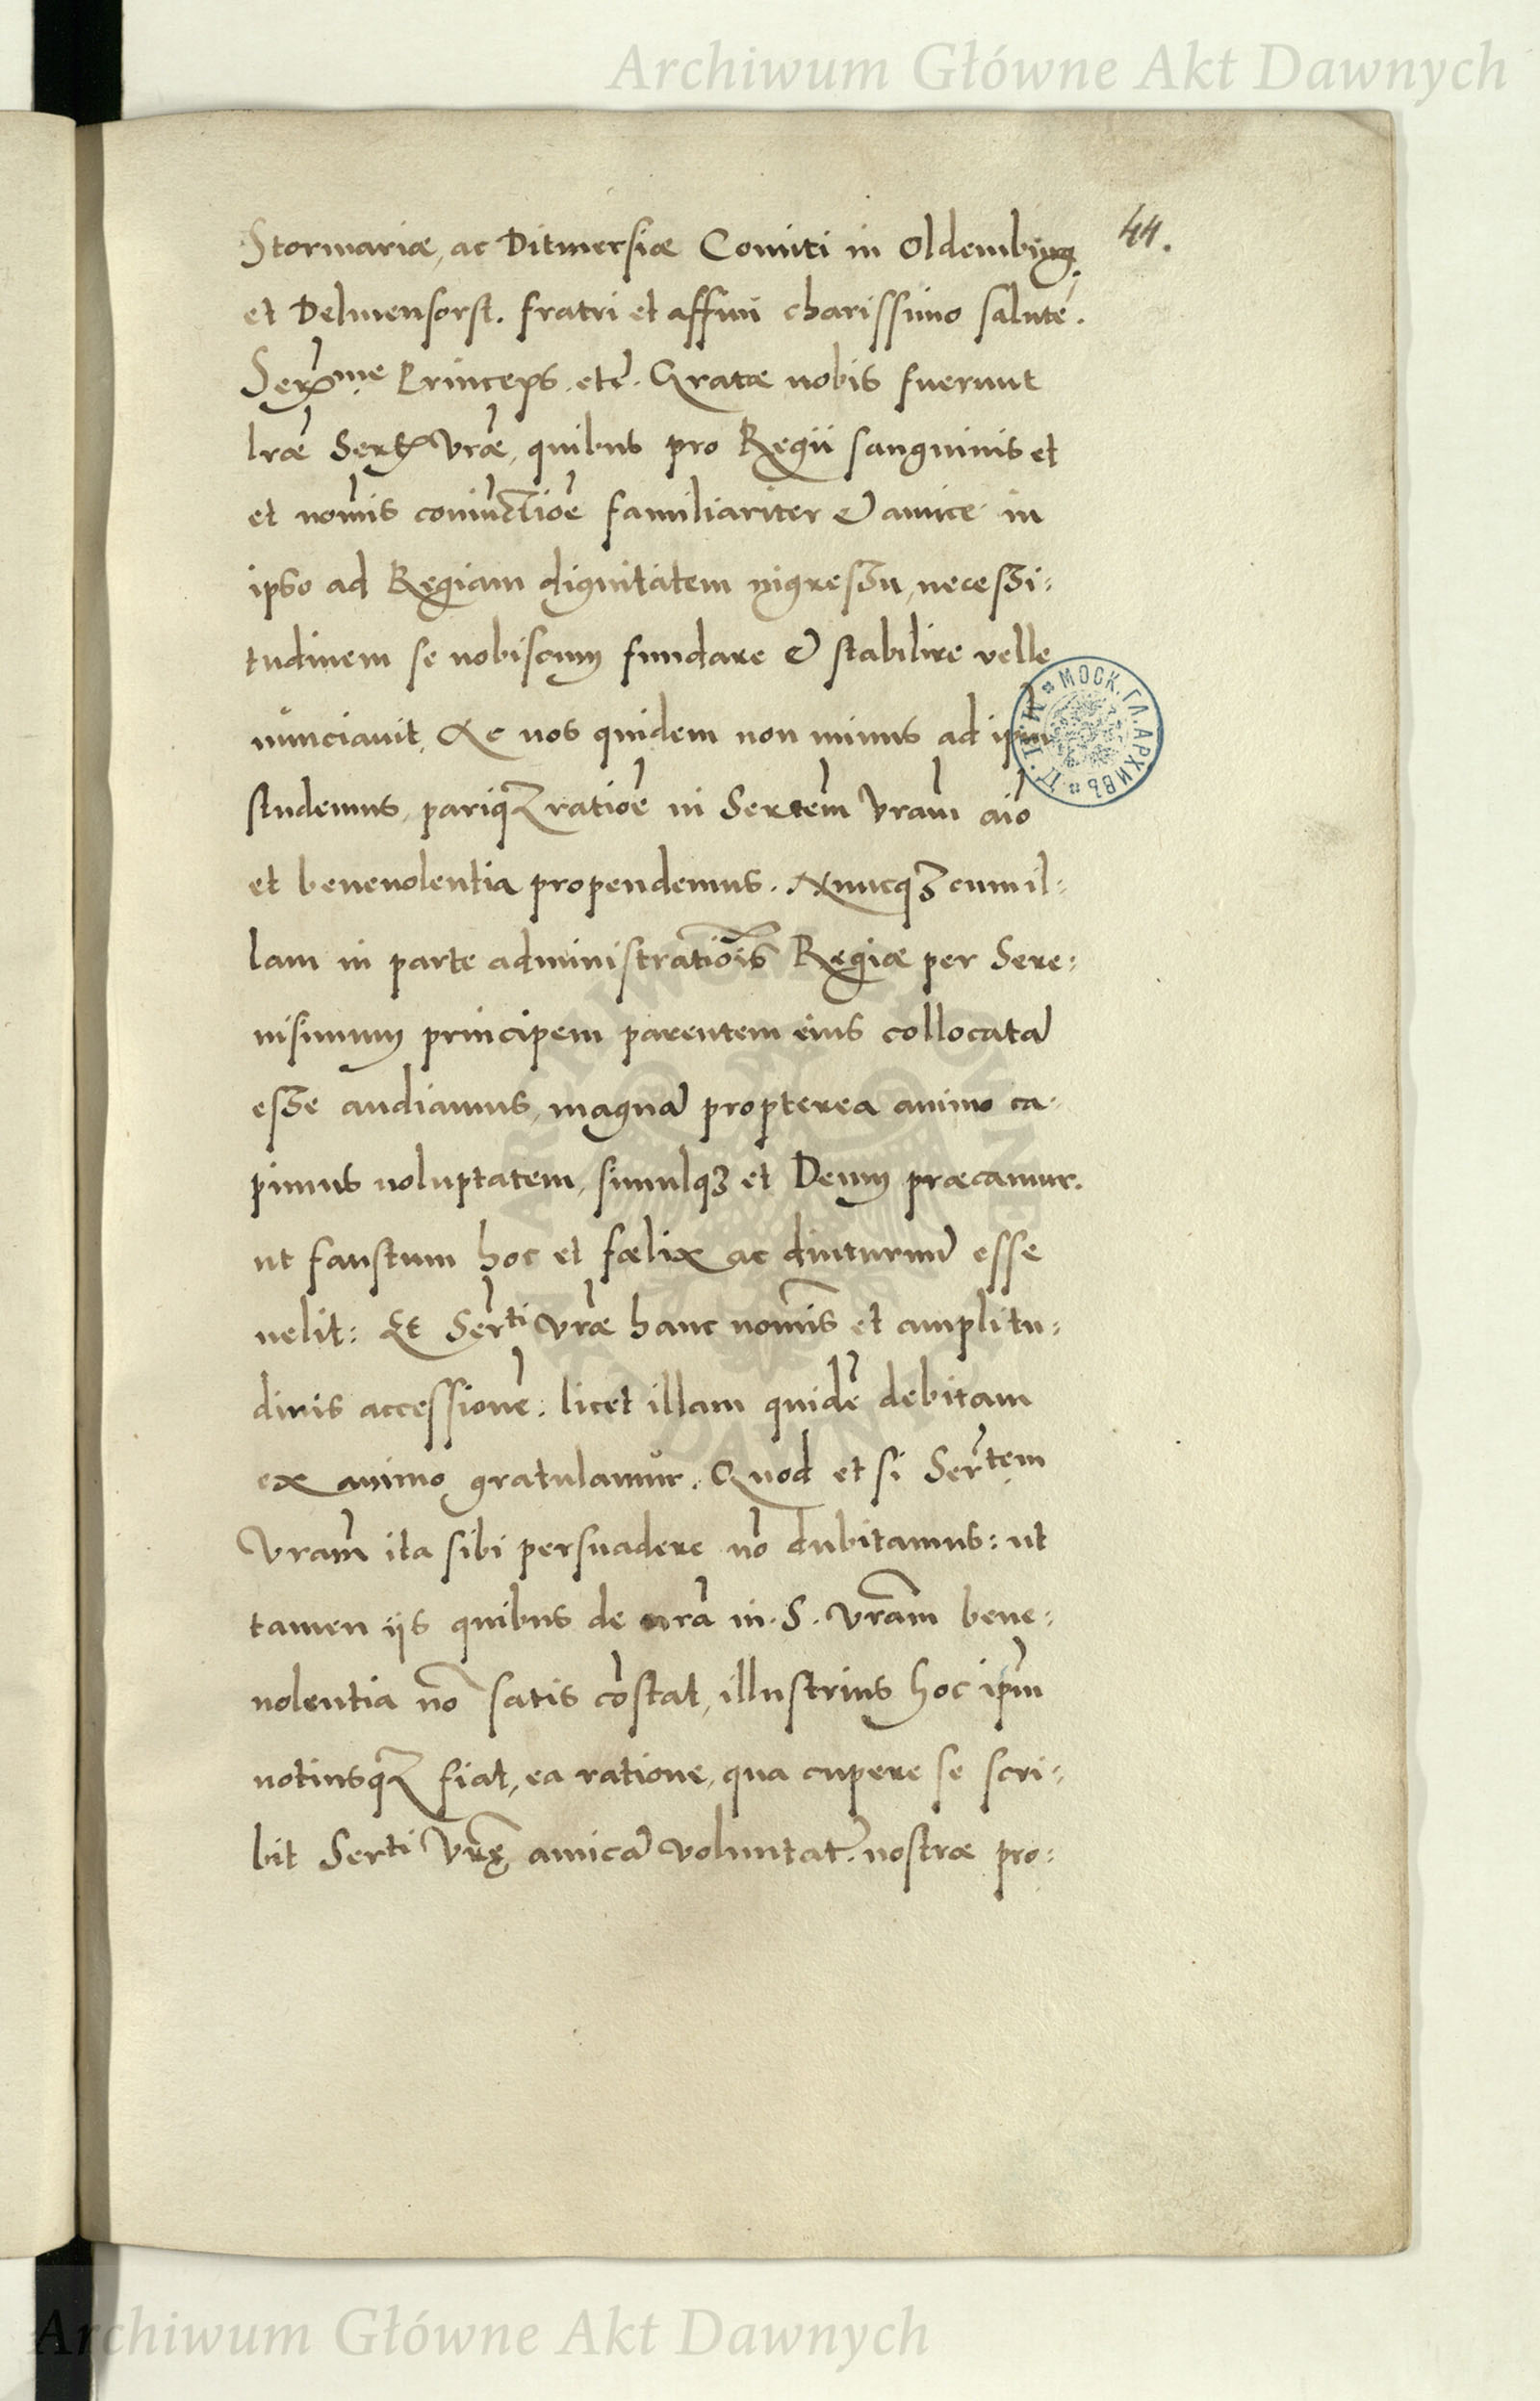 Archiwum Główne Akt Dawnych
44.
Stormariæ, ac Ditmersiæ Comiti in Oldemburg
et Delmensorst. fratri et affini charissimo salutē.
Serᵐᵉ Princeps. etc̄. Gratæ nobis fuerunt
lræ Sertis Vræ, quibus pro Regii sanguinis et
et nom̄is coniūctiōe familiariter & amice in
ipso ad Regiam dignitatem ingressu, necessi:
tudinem se nobiscum fundare & stabilire velle
nunciauit, Ac nos quidem non minus ad ipm̄
studemus, pariqꝫ ratiōe in Sertem̄ Vram̄ aīo
et beneuolentia propendemus. Nuncqꝫ cum il:
lam in parte administratiōis Regiæ per Sere:
nisimum principem parentem eius collocatā
esse audiamus, magnā propterea animo ca:
pimus uoluptatem, simulqꝫ et Deum præcamur.
ut faustum hoc et fœlix ac diuturnū esse
uelit: Et Serᵗⁱ Vræ hanc nom̄is et amplitu:
dinis accessionē: licet illam quidē debitam
ex animo gratulamur. Quod et si Serᵗᵉᵐ
Vram̄ ita sibi persuadere nō dubitamus: ut
tamen ijs quibus de nrā in. S. Vram̄ bene:
uolentia nō satis cōstat, illustrius hoc ipm̄
notiusqꝫ fiat, ea ratione, qua cupere se scri:
bit Serᵗⁱ Vrę amicā voluntat. nostræ pro:
МОСК. ГЛ. АРХИВЪ
Archiwum Główne Akt Dawnych